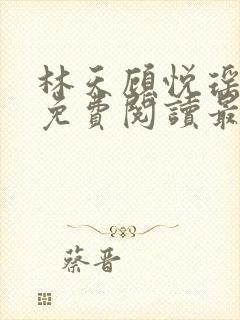 林天顧悅瑤
免費閱讀最
蔡晋